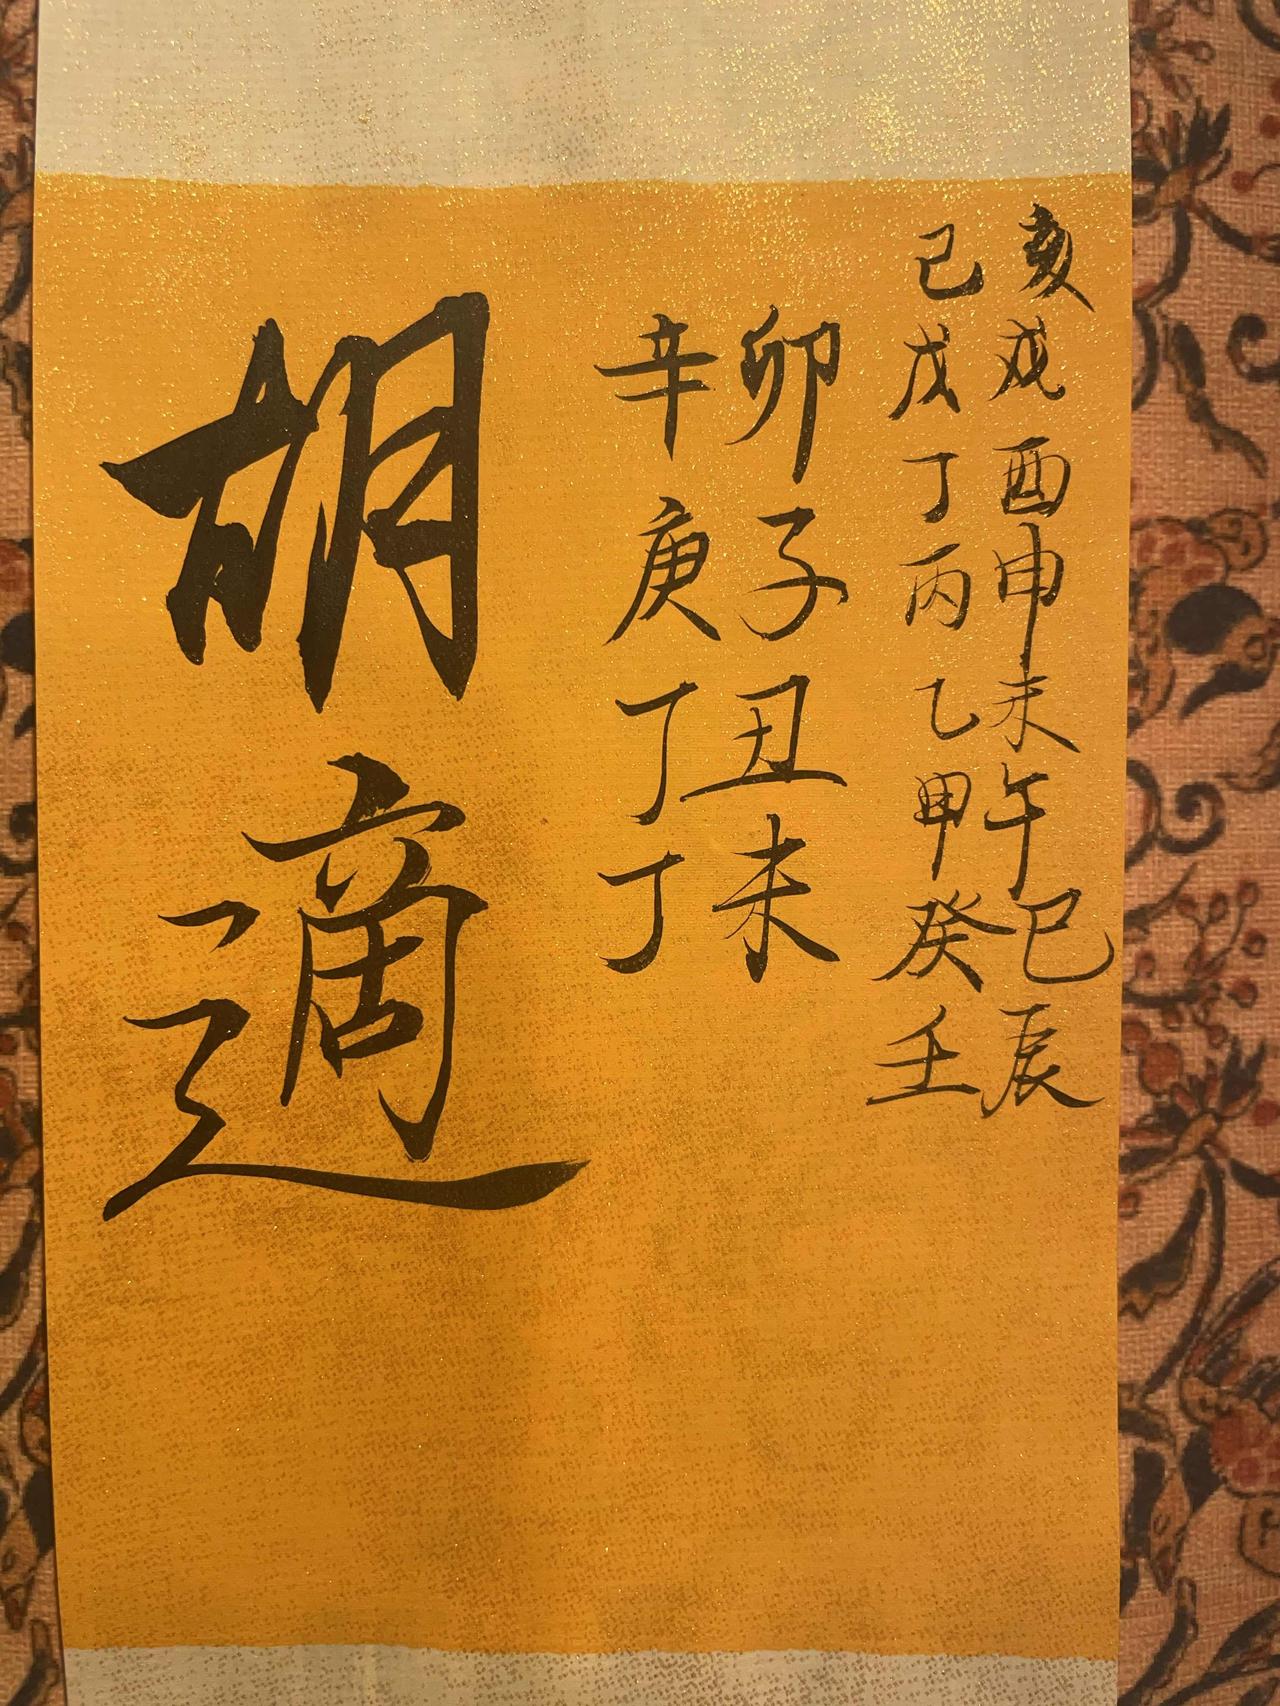 亥戌酉申未午巳辰
己戊丁丙乙甲癸壬
卯子丑未
辛庚丁丁
胡適